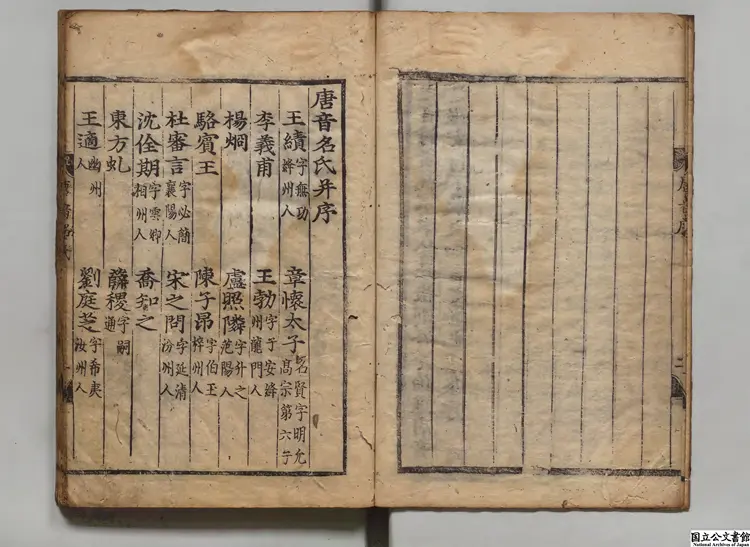 唐音序
二
唐音名氏并序
王績 字無功絳州人 章懷太子 名賢字明允高宗第六子
李義甫 王勃 字子安絳州龍門人
楊炯 盧照隣 字升之范陽人
駱賓王 陳子昂 字伯玉梓州人
杜審言 字必簡襄陽人 宋之問 字延清汾州人
沈佺期 字雲卿相州人 喬知之
東方虬 薛稷 字嗣通
王適 幽州人 劉庭芝 字希夷汝州人
唐音名氏
一
国立公文書館
National Archives of Japan